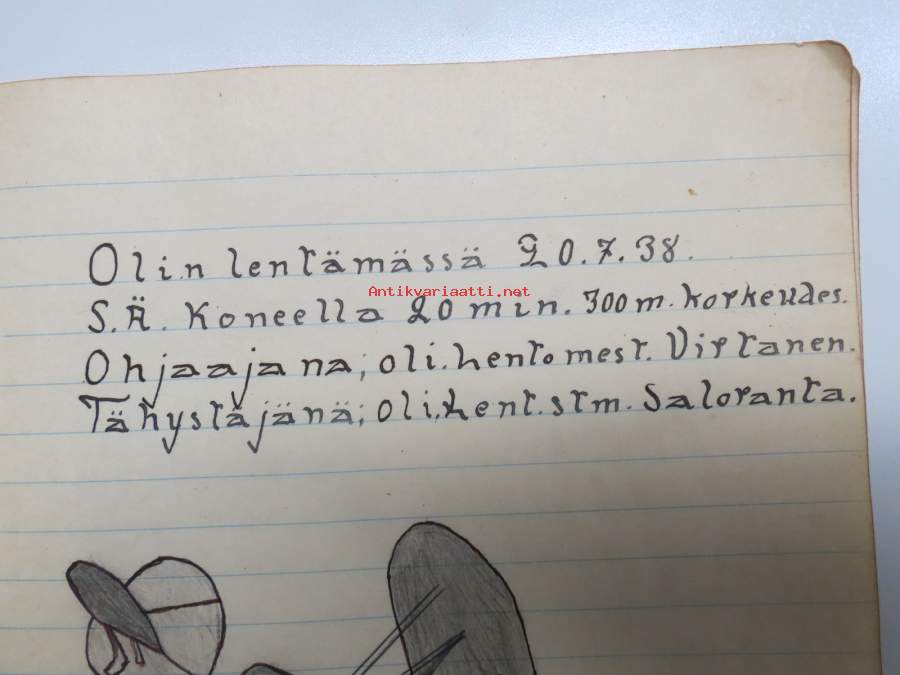 Olin lentämässä 20.7.38.
Antikvariaatti.net
S.Ä. Koneella 20 min. 300 m. korkeudes.
Ohjaajana; oli. lento mest. Virtanen.
Tähystäjänä; oli. lent. stm. Saloranta.